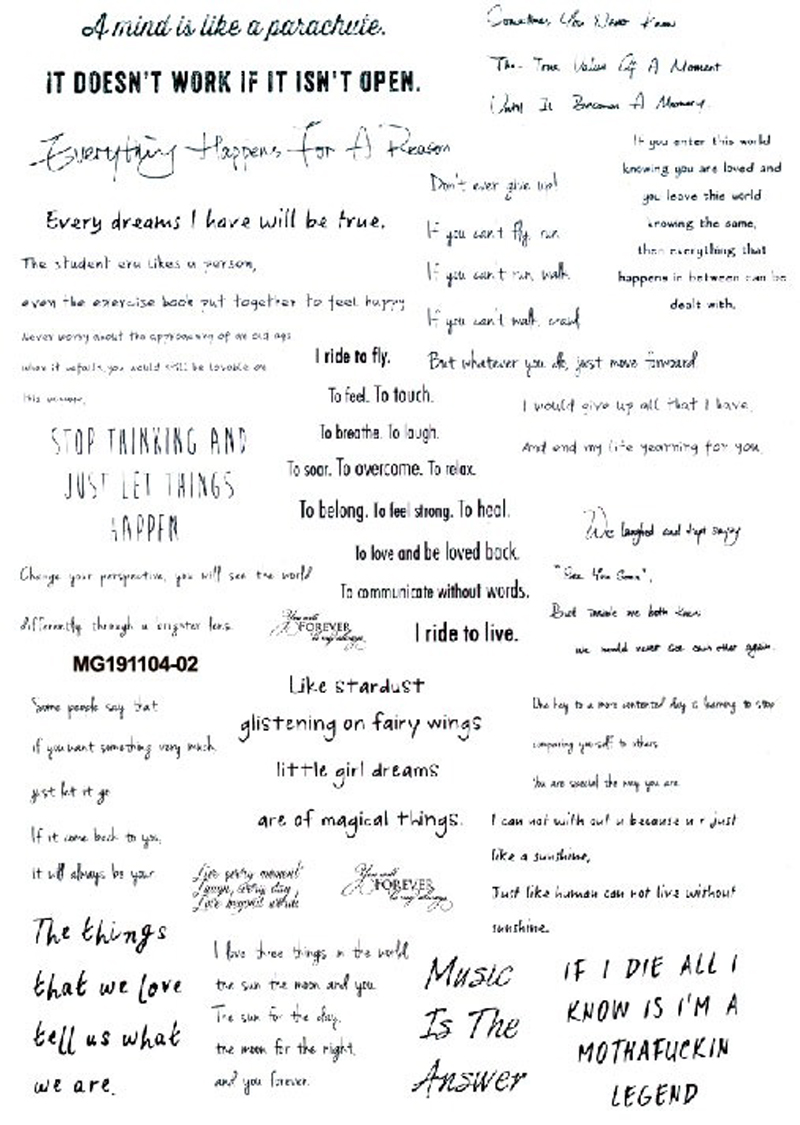 A mind is like a parachute.
IT DOESN'T WORK IF IT ISN'T OPEN.
Sometimes You Never Know
The True Value Of A Moment
Until It Becomes A Memory.
Everything Happens For A Reason
If you enter this world
knowing you are loved and
you leave this world
knowing the same,
then everything that
happens in between can be
dealt with.
Don't ever give up!
If you can't fly, run
If you can't run, walk
If you can't walk, crawl
But whatever you do, just move forward
Every dreams I have will be true.
The student eru likes a person,
even the exercise book put together to feel happy
Never worry about the approaching of an old age
when it you would still be lovable on
this
I ride to fly.
To feel. To touch.
To breathe. To laugh.
To soar. To overcome. To relax.
To belong. To feel strong. To heal.
To love and be loved back.
To communicate without words.
I ride to live.
I would give up all that I have,
And end my life yearning for you.
STOP THINKING AND
JUST LET THINGS
HAPPEN
We laughed and kept saying
"See You Soon",
But inside we both knew
we would never see each other again.
Change your perspective, you will see the world
differently through a brighter lens.
You will
FOREVER
be my always
MG191104-02
Like stardust
glistening on fairy wings
little girl dreams
are of magical things.
Some people say that
if you want something very much
just let it go
If it come back to you,
it will always be your
The key to a more contented day is learning to stop
comparing yourself to others
You are special the way you are
I can not with out u because u r just
like a sunshine,
Just like human can not live without
sunshine.
Live every moment
Laugh every day,
Love beyond words
You will
FOREVER
be my always
The things
that we love
tell us what
we are.
I love three things in the world
the sun the moon and you
The sun for the day,
the moon for the night,
and you forever.
Music
Is The
Answer
IF I DIE ALL I
KNOW IS I'M A
MOTHAFUCKIN
LEGEND